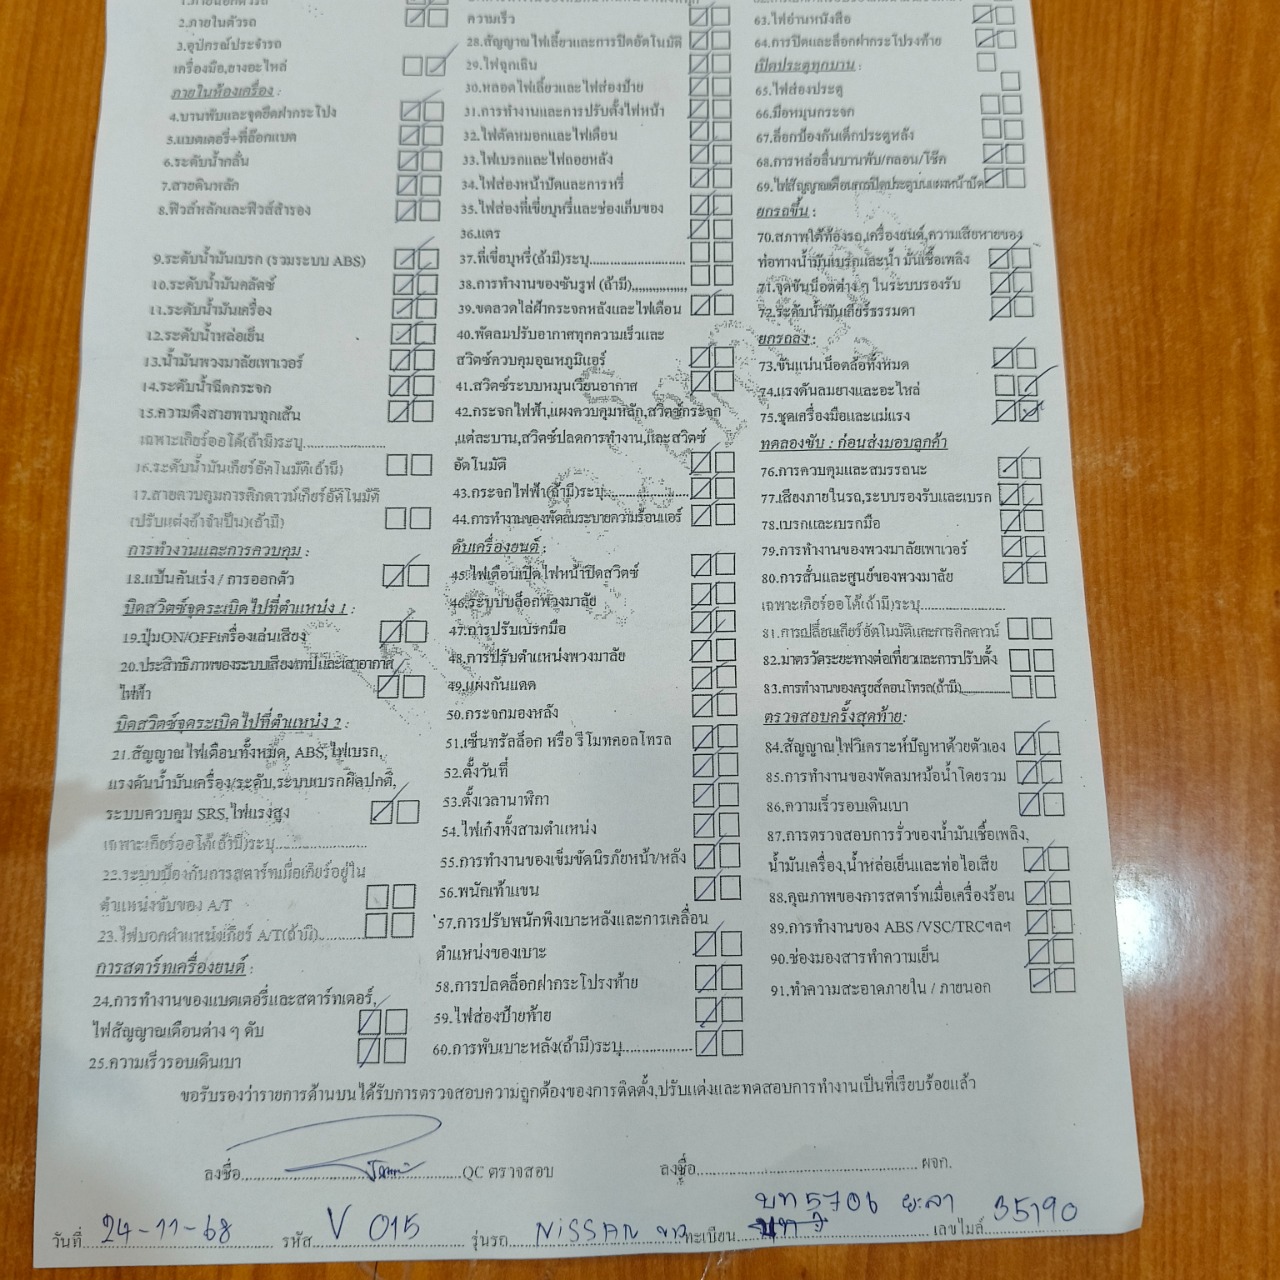 1.ภายนอกตัวรถ
2.ภายในตัวรถ
3.อุปกรณ์ประจำรถ
เครื่องมือ,ยางอะไหล่
ภายในห้องเครื่อง :
4.บานพับและจุดยึดฝากระโปง
5.แบตเตอรี่+ที่ล๊อกแบต
6.ระดับน้ำกลั่น
7.สายดินหลัก
8.ฟิวส์หลักและฟิวส์สำรอง
9.ระดับน้ำมันเบรก (รวมระบบ ABS)
10.ระดับน้ำมันคลัตช์
11.ระดับน้ำมันเครื่อง
12.ระดับน้ำหล่อเย็น
13.น้ำมันพวงมาลัยเพาเวอร์
14.ระดับน้ำฉีดกระจก
15.ความตึงสายพานทุกเส้น
เฉพาะเกียร์ออโต้(ถ้ามี)ระบุ....................
16.ระดับน้ำมันเกียร์อัตโนมัติ(ถ้ามี)
17.สายควบคุมการคิกดาวน์เกียร์อัตโนมัติ
(ปรับแต่งถ้าจำเป็น)(ถ้ามี)
การทำงานและการควบคุม :
18.แป้นคันเร่ง / การออกตัว
บิดสวิตซ์จุดระเบิดไปที่ตำแหน่ง 1 :
19.ปุ่มON/OFFเครื่องเล่นเสียง
20.ประสิทธิภาพของระบบเสียงเทปและเสาอากาศ
ไฟฟ้า
บิดสวิตซ์จุดระเบิดไปที่ตำแหน่ง 2 :
21.สัญญาณไฟเตือนทั้งหมด, ABS,ไฟเบรก,
แรงดันน้ำมันเครื่อง/ระดับ,ระบบเบรกผิดปกติ,
ระบบควบคุม SRS,ไฟแรงสูง
เฉพาะเกียร์ออโต้(ถ้ามี)ระบุ....................
22.ระบบป้องกันการสตาร์ทเมื่อเกียร์อยู่ใน
ตำแหน่งขับของ A/T
23.ไฟบอกตำแหน่งเกียร์ A/T(ถ้ามี)..........
การสตาร์ทเครื่องยนต์ :
24.การทำงานของแบตเตอรี่และสตาร์ทเตอร์,
ไฟสัญญาณเตือนต่าง ๆ ดับ
25.ความเร็วรอบเดินเบา
ความเร็ว
28.สัญญาณไฟเลี้ยวและการปิดอัตโนมัติ
29.ไฟฉุกเฉิน
30.หลอดไฟเลี้ยวและไฟส่องป้าย
31.การทำงานและการปรับตั้งไฟหน้า
32.ไฟตัดหมอกและไฟเตือน
33.ไฟเบรกและไฟถอยหลัง
34.ไฟส่องหน้าปัดและการหรี่
35.ไฟส่องที่เขี่ยบุหรี่และช่องเก็บของ
36.แตร
37.ที่เขี่ยบุหรี่(ถ้ามี)ระบุ........................
38.การทำงานของซันรูฟ (ถ้ามี)...............
39.ขดลวดไล่ฝ้ากระจกหลังและไฟเตือน
40.พัดลมปรับอากาศทุกความเร็วและ
สวิตช์ควบคุมอุณหภูมิแอร์
41.สวิตช์ระบบหมุนเวียนอากาศ
42.กระจกไฟฟ้า,แผงควบคุมหลัก,สวิตช์กระจก
แต่ละบาน,สวิตซ์ปลดการทำงาน,และสวิตซ์
อัตโนมัติ
43.กระจกไฟฟ้า(ถ้ามี)ระบุ.....................
44.การทำงานของพัดลมระบายความร้อนแอร์
ดับเครื่องยนต์ :
45.ไฟเตือนเปิดไฟหน้าปิดสวิตซ์
46.ระบบบล็อกพวงมาลัย
47.การปรับเบรกมือ
48.การปรับตำแหน่งพวงมาลัย
49.แผงกันแดด
50.กระจกมองหลัง
51.เซ็นทรัลล็อก หรือ รีโมทคอลโทรล
52.ตั้งวันที่
53.ตั้งเวลานาฬิกา
54.ไฟเก๋งทั้งสามตำแหน่ง
55.การทำงานของเข็มขัดนิรภัยหน้า/หลัง
56.พนักเท้าแขน
57.การปรับพนักพิงเบาะหลังและการเคลื่อน
ตำแหน่งของเบาะ
58.การปลดล็อกฝากระโปรงท้าย
59.ไฟส่องป้ายท้าย
60.การพับเบาะหลัง(ถ้ามี)ระบุ..................
63.ไฟอ่านหนังสือ
64.การปิดและล็อกฝากระโปรงท้าย
เปิดประตูทุกบาน :
65.ไฟส่องประตู
66.มือหมุนกระจก
67.ล็อกป้องกันเด็กประตูหลัง
68.การหล่อลื่นบานพับ/กลอน/โช๊ก
69.ไฟสัญญาณเตือนการปิดประตูบนแผงหน้าปัด
ยกรถขึ้น :
70.สภาพใต้ท้องรถ,เครื่องยนต์,ความเสียหายของ
ท่อทางน้ำมันเบรกและน้ำ มันเชื้อเพลิง
71.จุดขันน็อตต่าง ๆ ในระบบรองรับ
72.ระดับน้ำมันเกียร์ธรรมดา
ยกรถลง :
73.ขันแน่นน็อตล้อทั้งหมด
74.แรงดันลมยางและอะไหล่
75.ชุดเครื่องมือและแม่แรง
ทดลองขับ : ก่อนส่งมอบลูกค้า
76.การควบคุมและสมรรถนะ
77.เสียงภายในรถ,ระบบรองรับและเบรก
78.เบรกและเบรกมือ
79.การทำงานของพวงมาลัยเพาเวอร์
80.การสั่นและศูนย์ของพวงมาลัย
เฉพาะเกียร์ออโต้(ถ้ามี)ระบุ....................
81.การเปลี่ยนเกียร์อัตโนมัติและการคิกดาวน์
82.มาตรวัดระยะทางต่อเที่ยวและการปรับตั้ง
83.การทำงานของครุยส์คอนโทรล(ถ้ามี)..........
ตรวจสอบครั้งสุดท้าย:
84.สัญญาณไฟวิเคราะห์ปัญหาด้วยตัวเอง
85.การทำงานของพัดลมหม้อน้ำโดยรวม
86.ความเร็วรอบเดินเบา
87.การตรวจสอบการรั่วของน้ำมันเชื้อเพลิง,
น้ำมันเครื่อง,น้ำหล่อเย็นและท่อไอเสีย
88.คุณภาพของการสตาร์ทเมื่อเครื่องร้อน
89.การทำงานของ ABS /VSC/TRCฯลฯ
90.ช่องมองสารทำความเย็น
91.ทำความสะอาดภายใน / ภายนอก
ขอรับรองว่ารายการด้านบนได้รับการตรวจสอบความถูกต้องของการติดตั้ง,ปรับแต่งและทดสอบการทำงานเป็นที่เรียบร้อยแล้ว
ลงชื่อ........................................QC ตรวจสอบ ลงชื่อ........................................ ผจก.
วันที่ 24-11-68 รหัส V 015 รุ่นรถ NISSAN ทะเบียน บท 5706 ยะลา เลขไมล์ 35190